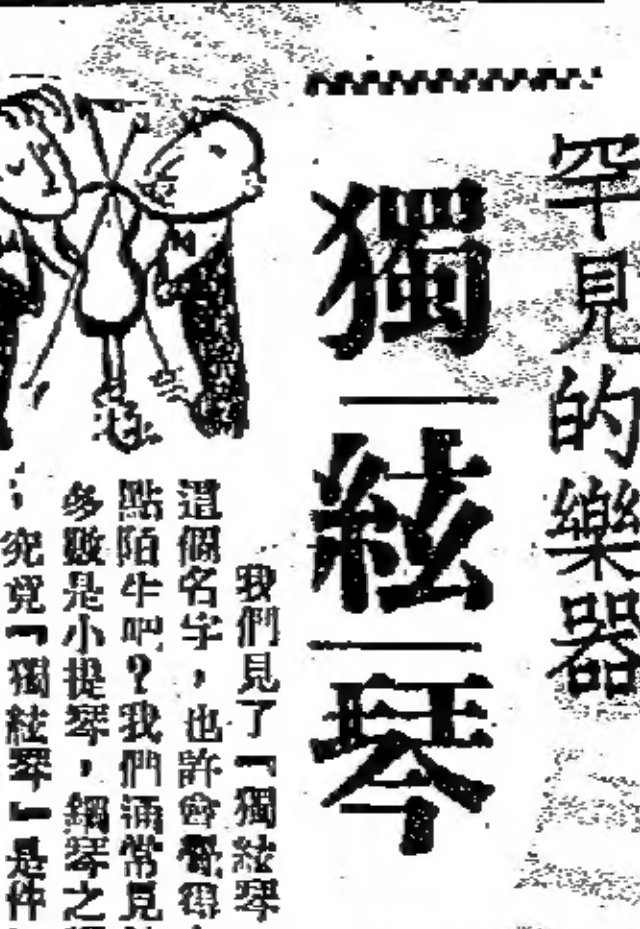 罕見的樂器
獨絃琴
我們見了『獨絃琴
這個名字，也許會覺得
點陌生吧？我們通常見
多數是小提琴，鋼琴之
；究竟『獨絃琴』是件